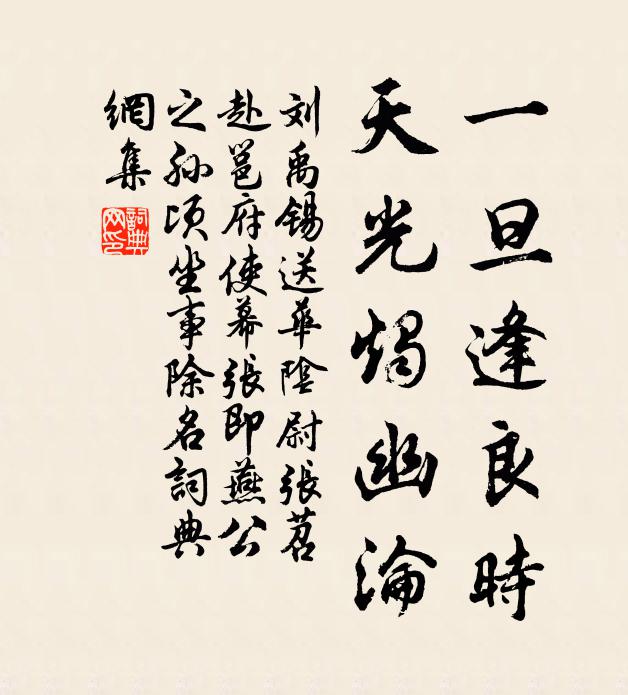 一旦逢良時
天光燭幽淪
刘禹錫送華陰尉張苕
赴邕府使幕張即燕公
之孙頃坐事除名詞典
網集
詞典
网印